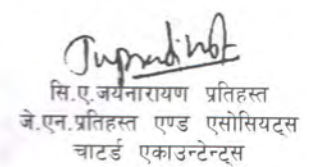 सि.ए.जयनारायण प्रतिहस्त
जे.एन.प्रतिहस्त एण्ड एसोसियट्स
चाटर्ड एकाउन्टेन्ट्स